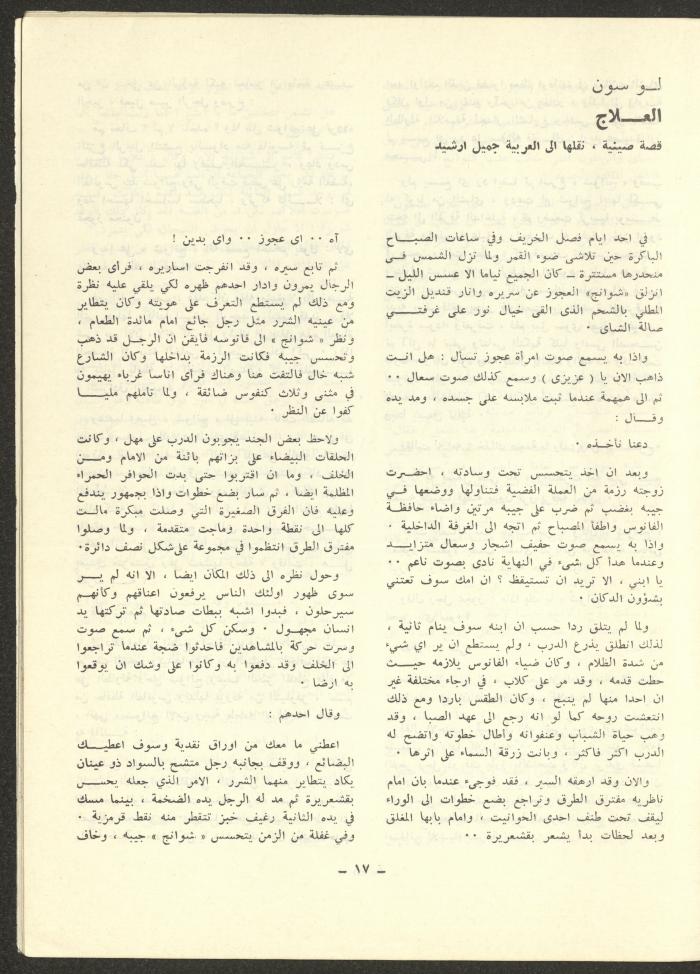 لـو سون
العـــلاج
قصة صينية ، نقلها الى العربية جميل ارشيد
في احد ايام فصل الخريف وفي ساعات الصبـــاح
الباكرة حين تلاشى ضوء القمر ولما تزل الشمس فـي
منحدرها مستترة ــ كان الجميع نياما الا عسس الليل ــ
انزلق «شوانج» العجوز عن سريره وانار قنديل الزيت
المطلي بالشحم الذى القى خيال نور على غرفتــي
صالة الشاى ٠
واذا به يسمع صوت امرأة عجوز تسأل : هل انـت
ذاهب الان يا ( عزيزى ) وسمع كذلك صوت سعال ٠٠
ثم الى همهمة عندما ثبت ملابسه على جسده ، ومد يده
وقــال :
دعنا نأخـذه ٠
وبعد ان اخذ يتحسس تحت وسادته ، احضـرت
زوجته رزمة من العملة الفضية فتناولها ووضعها فـي
جيبه بغضب ثم ضرب على جيبه مرتين واضاء حافظـة
الفانوس واطفأ المصباح ثم اتجه الى الغرفة الداخلية ٠
واذا به يسمع صوت حفيف اشجار وسعال متزايـد
وعندما هدأ كل شىء في النهاية نادى بصوت ناعم ٠٠
يا ابني ، الا تريد ان تستيقظ ؟ ان امك سوف تعتني
بشؤون الدكان ٠
ولما لم يتلق ردا حسب ان ابنه سوف ينام ثانية ،
لذلك انطلق يذرع الدرب ، ولم يستطع ان ير اي شيء
من شدة الظلام ، وكان ضياء الفانوس يلازمه حيـث
حطت قدمه ، وقد مر على كلاب ، في ارجاء مختلفة غير
ان احدا منها لم ينبح ، وكان الطقس باردا ومع ذلك
انتعشت روحه كما لو انه رجع الى عهد الصبا ، وقد
وهب حياة الشباب وعنفوانه وأطال خطوته واتضح له
الدرب اكثر فأكثر ، وبانت زرقة السماء على اثرها ٠
والان وقد ارهقه السير ، فقد فوجىء عندما بان امام
ناظريه مفترق الطرق وتراجع بضع خطوات الى الوراء
ليقف تحت طنف احدى الحوانيت ، وامام بابها المغلق
وبعد لحظات بدأ يشعر بقشعريرة ٠٠
آه ٠٠ اى عجوز ٠٠ واى بدين !
ثم تابع سيره ، وقد انفرجت اساريره ، فرأى بعض
الرجال يمرون وادار احدهم ظهره لكي يلقي عليه نظرة
ومع ذلك لم يستطع التعرف على هويته وكان يتطاير
من عينيه الشرر مثل رجل جائع امام مائدة الطعام ،
ونظر « شوانج » الى فانوسه فأيقن ان الرجـل قد ذهب
وتحسس جيبه فكانت الرزمة بداخلها وكان الشارع
شبه خال فالتفت هنا وهناك فرأى اناسا غرباء يهيمون
في مثنى وثلاث كنفوس ضائقة ، ولما تأملهم مليــا
كفوا عن النظر ٠
ولاحظ بعض الجند يجوبون الدرب على مهل ، وكانت
الحلقات البيضاء على بزاتهم بائنة من الامام ومـــن
الخلف ، وما ان اقتربوا حتى بدت الحوافر الحمراء
المظلمة ايضا ، ثم سار بضع خطوات واذا بجمهور يندفع
وعليه فان الفرق الصغيرة التي وصلت مبكرة مالـت
كلها الى نقطة واحدة وماجت متقدمة ، ولما وصلوا
مفترق الطرق انتظموا في مجموعة على شكل نصف دائرة٠
وحول نظره الى ذلك المكان ايضا ، الا انه لم يـــر
سوى ظهور اولئك الناس يرفعون اعناقهم وكأنهـم
سيرحلون ، فبدوا اشبه ببطات صادتها ثم تركتها يد
انسان مجهـول ٠ وسكن كل شىء ، ثم سمع صوت
وسرت حركة بالمشاهدين فأحدثوا ضجة عندما تراجعوا
الى الخلف وقد دفعوا به وكانوا على وشك ان يوقعوا
به ارضا ٠
وقال احدهم :
اعطني ما معك من اوراق نقدية وسوف اعطيـــك
البضائع ، ووقف بجانبه رجل متشح بالسواد ذو عينان
يكاد يتطاير منهما الشرر ، الامر الذي جعله يحســس
بقشعريرة ثم مد له الرجل يده الضخمة ، بينما مسك
في يده الثانية رغيف خبز تتقطر منه نقط قرمزية ٠
وفي غفلة من الزمن يتحسس « شوانج » جيبه ، وخاف
ــ ١٧ ــ